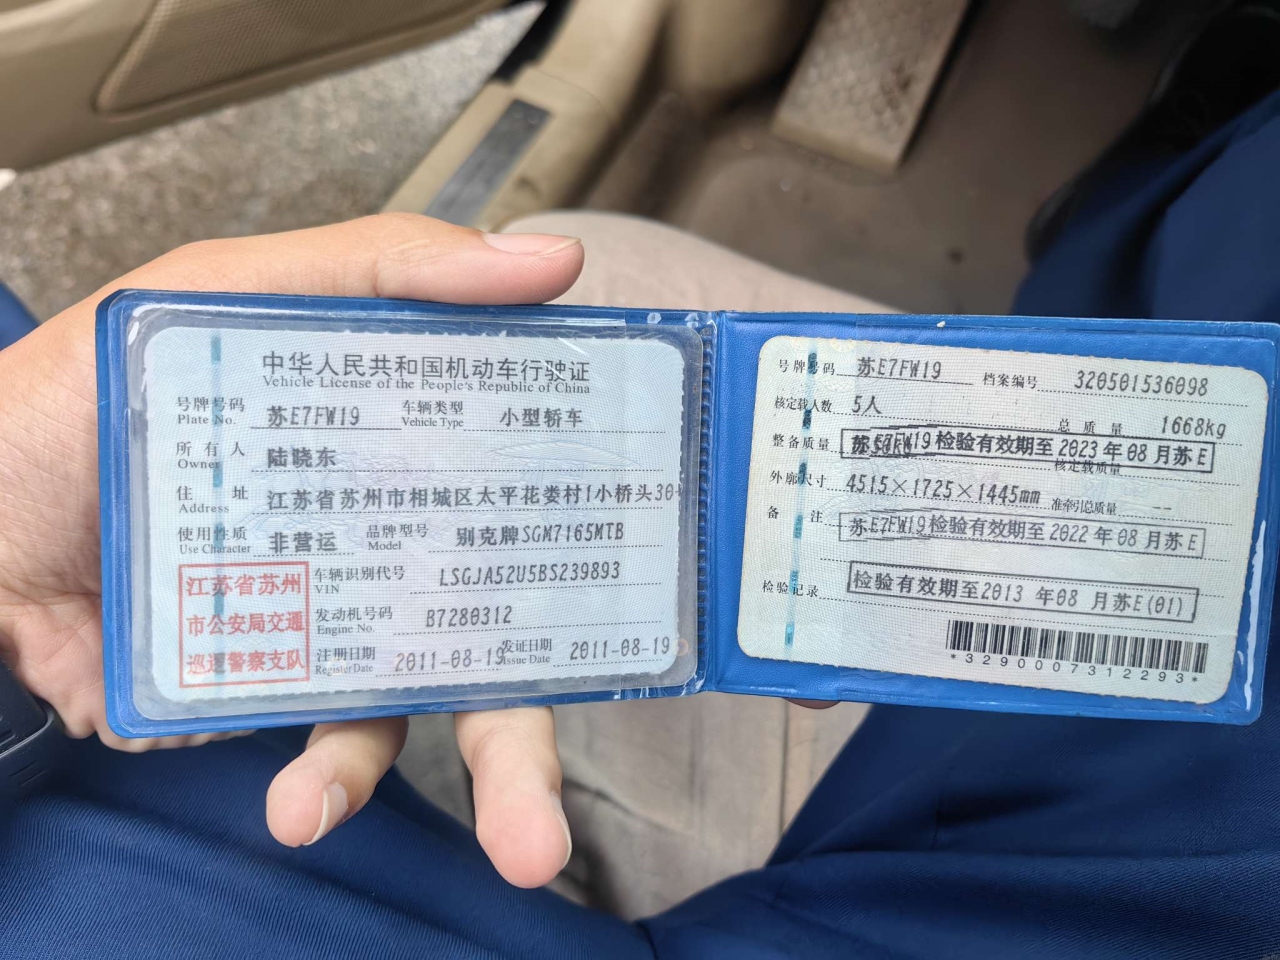 中华人民共和国机动车行驶证
Vehicle License of the People's Republic of China
号牌号码 Plate No. 苏E7FW19 车辆类型 Vehicle Type 小型轿车
所有人 Owner 陆晓东
住址 Address 江苏省苏州市相城区太平花娄村1小桥头30
使用性质 Use Character 非营运 品牌型号 Model 别克牌SGM7165MTB
江苏省苏州
市公安局交通
巡逻警察支队
车辆识别代号 VIN LSGJA52U5BS239893
发动机号码 Engine No. B7280312
注册日期 Register Date 2011-08-19 发证日期 Issue Date 2011-08-19
号牌号码 苏E7FW19 档案编号 320501536098
核定载人数 5人 总质量 1668kg
整备质量 核定载质量
苏E7FW19检验有效期至2023年08月苏E
外廓尺寸 4515×1725×1445mm 准牵引总质量 --
备注
苏E7FW19检验有效期至2022年08月苏E
检验记录 检验有效期至2013年08月苏E(01)
*3290007312293*